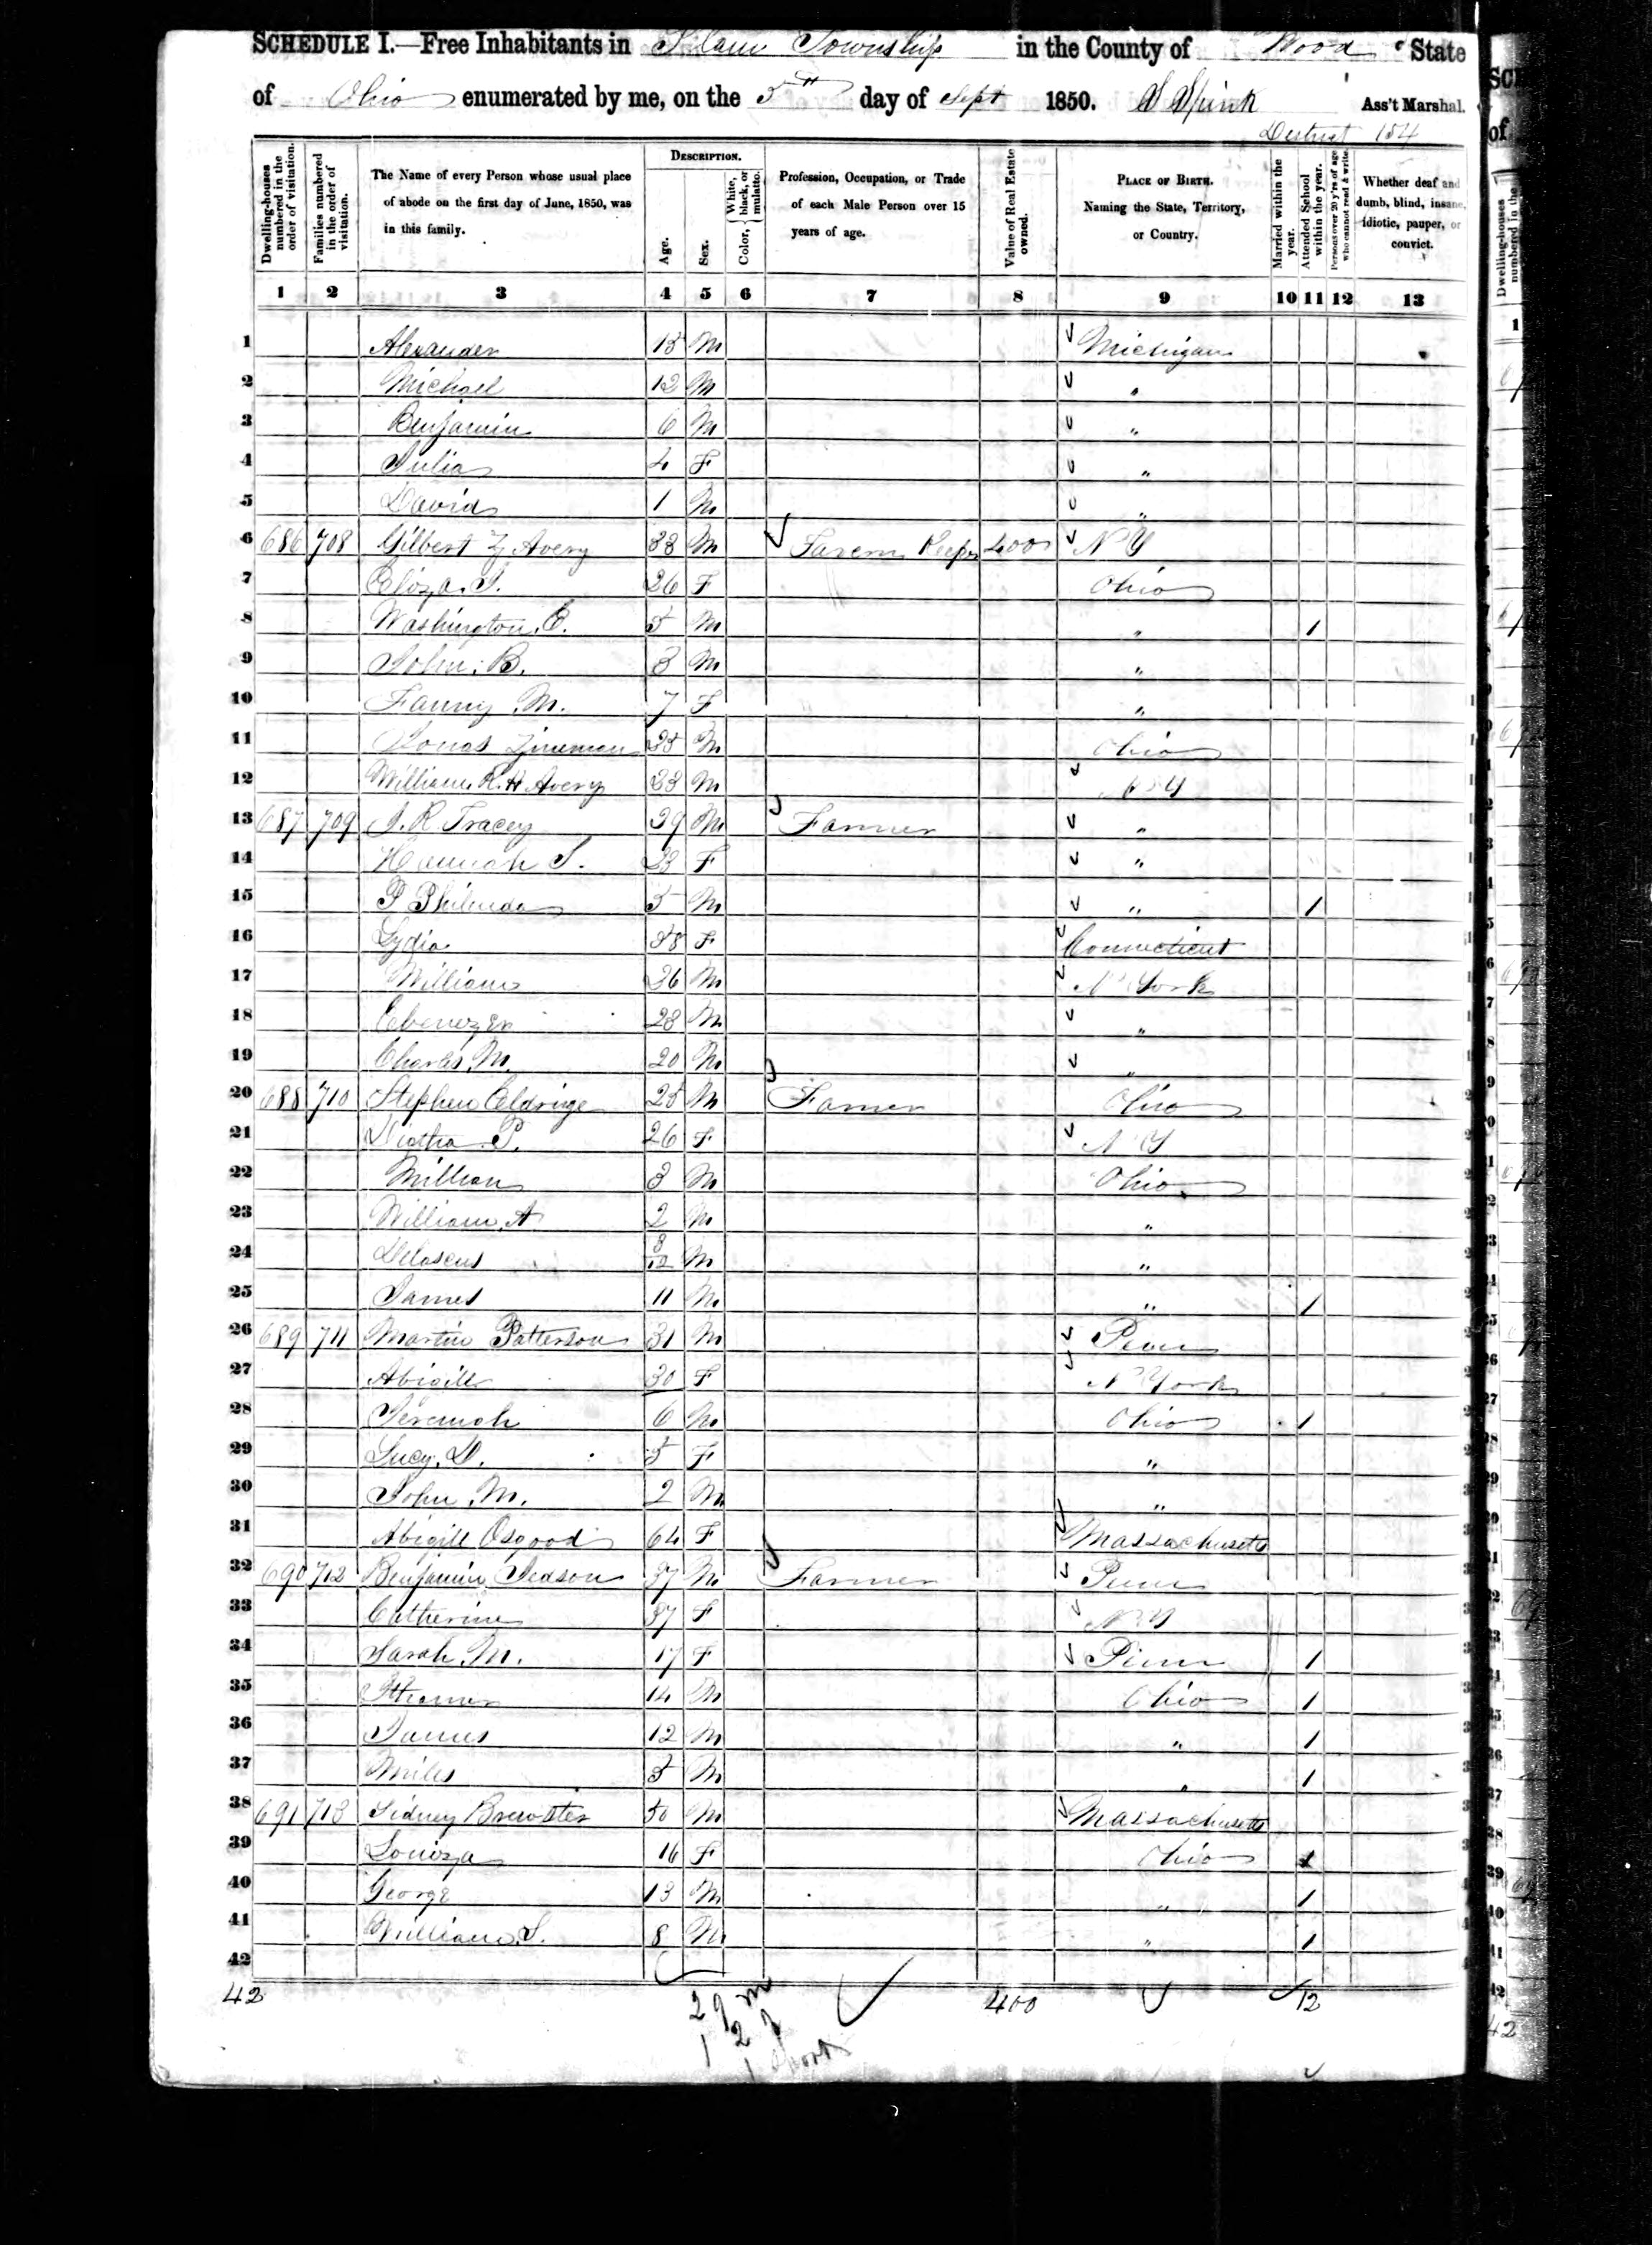 SCHEDULE I.—Free Inhabitants in Township in the County of Wood State
of Ohio enumerated by me, on the 5th day of Sept 1850. S Spink Ass't Marshal.
District 154
Dwelling-houses numbered in the order of visitation. Families numbered in the order of visitation. The Name of every Person whose usual place of abode on the first day of June, 1850, was in this family. DESCRIPTION. Age. Sex. Color, { White, black, or mulatto. Profession, Occupation, or Trade of each Male Person over 15 years of age. Value of Real Estate owned. PLACE OF BIRTH. Naming the State, Territory, or Country. Married within the year. Attended School within the year. Persons over 20 y'rs of age who cannot read & write. Whether deaf and dumb, blind, insane, idiotic, pauper, or convict.
1 2 3 4 5 6 7 8 9 10 11 12 13
1 Alexander 15 M Michigan
2 Michael 12 M "
3 Benjamin 6 M "
4 Julia 4 F "
5 David 1 M "
6 686 708 Gilbert Z Avery 33 M Tavern Keeper 400 N Y
7 Eliza. S. 26 F Ohio
8 Washington. E. 5 M " 1
9 John. B. 3 M "
10 Fanny. M. 7 F "
11 Zineman 25 M Ohio
12 William R. H Avery 23 M N Y
13 687 709 J. R Tracey 39 M Farmer "
14 Hannah S. 23 F "
15 P 5 M " 1
16 Lydia 58 F Connecticut
17 William 26 M N York
18 Ebenezer 28 M "
19 Charles. M. 20 M "
20 688 710 Stephen Eldrige 25 M Farmer Ohio
21 P. 26 F N Y
22 3 M Ohio
23 William. A 2 M "
24 8/12 M "
25 James 11 M " 1
26 689 711 Martin Patterson 31 M Penn
27 Abigill 30 F N York
28 Jeremiah 6 M Ohio 1
29 Lucy. D. 5 F "
30 John. M. 2 M "
31 Abigill Osgood 64 F Massachusetts
32 690 712 Benjamin 37 M Farmer Penn
33 Catherine 37 F N Y
34 Sarah. M. 17 F Penn 1
35 14 M Ohio 1
36 James 12 M " 1
37 Miles 5 M " 1
38 691 713 Sidney Brewster 50 M Massachusetts
39 Louiza 16 F Ohio 1
40 George 13 M " 1
41 William. S. 8 M " 1
42
42 400 12
29 m
12 f
1 short